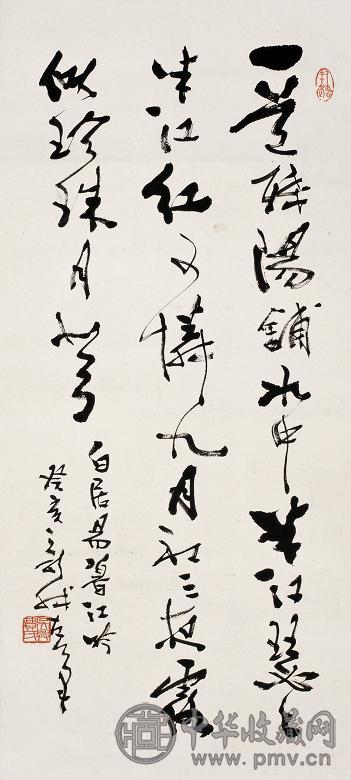 一道殘陽鋪水中半江瑟〻
半江紅可憐九月初三夜露
似珍珠月似弓
白居易暮江吟
癸亥新我左筆
中华收藏网
www.pmv.cn